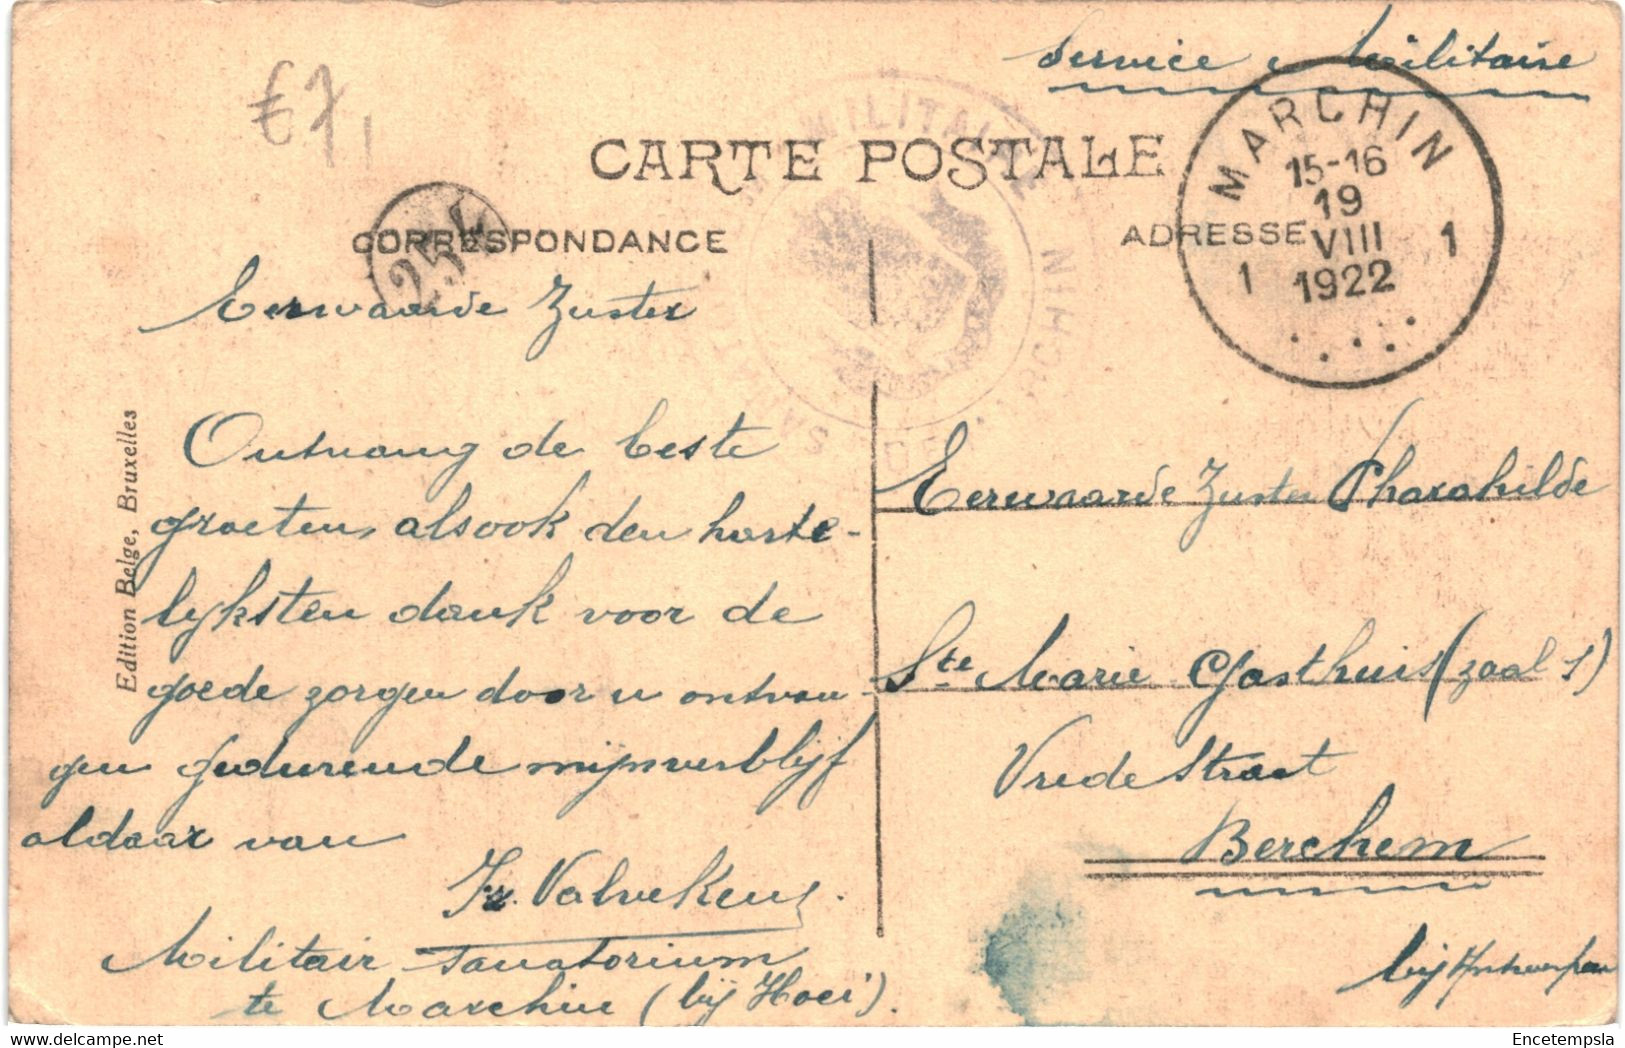 Service Militaire
€7,
CARTE POSTALE
MILITAIRE
DE MARCHIN
MARCHIN
15-16
19
VIII
1922
1 1
CORRESPONDANCE
ADRESSE
Edition Belge, Bruxelles
Eerwaarde Zuster
Ontvang de beste
groeten, alsook den harte-
lijksten dank voor de
goede zorgen door u ontvan-
gen gedurende mijn verblijf
aldaar van
Fr. Valvekens.
Militair Sanatorium
te Marchin (bij Hoei).
Eerwaarde Zuster Pharahilde
Ste Marie Gasthuis (zaal 1)
Vrede Straat
Berchem
bij Antwerpen
Encetempsla